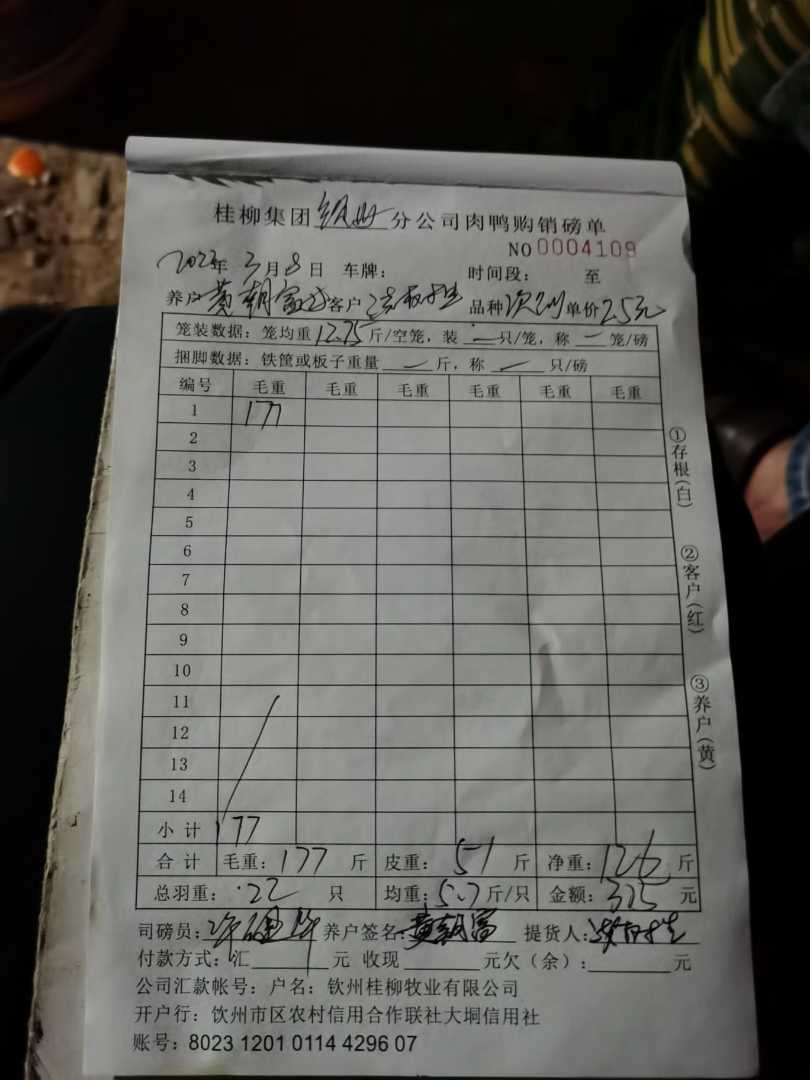 桂柳集团 分公司肉鸭购销磅单
NO 0004109
年 3月8日 车牌: 时间段: 至
养户 黄朝富 客户 品种 单价 2.5元
笼装数据: 笼均重 12.75 斤/空笼, 装 一 只/笼, 称 一 笼/磅
捆脚数据: 铁筐或板子重量 一 斤, 称 一 只/磅
编号 毛重 毛重 毛重 毛重 毛重 毛重
1 177
2
3
4
5
6
7
8
9
10
11
12
13
14
小计 177
合计 毛重: 177 斤 皮重: 51 斤 净重: 126 斤
总羽重: 22 只 均重: 5.7 斤/只 金额: 315 元
司磅员: 养户签名: 黄朝富 提货人:
付款方式: 汇 元 收现 元欠(余): 元
公司汇款帐号: 户名: 钦州桂柳牧业有限公司
开户行: 钦州市区农村信用合作联社大垌信用社
账号: 8023 1201 0114 4296 07
①存根(白)
②客户(红)
③养户(黄)